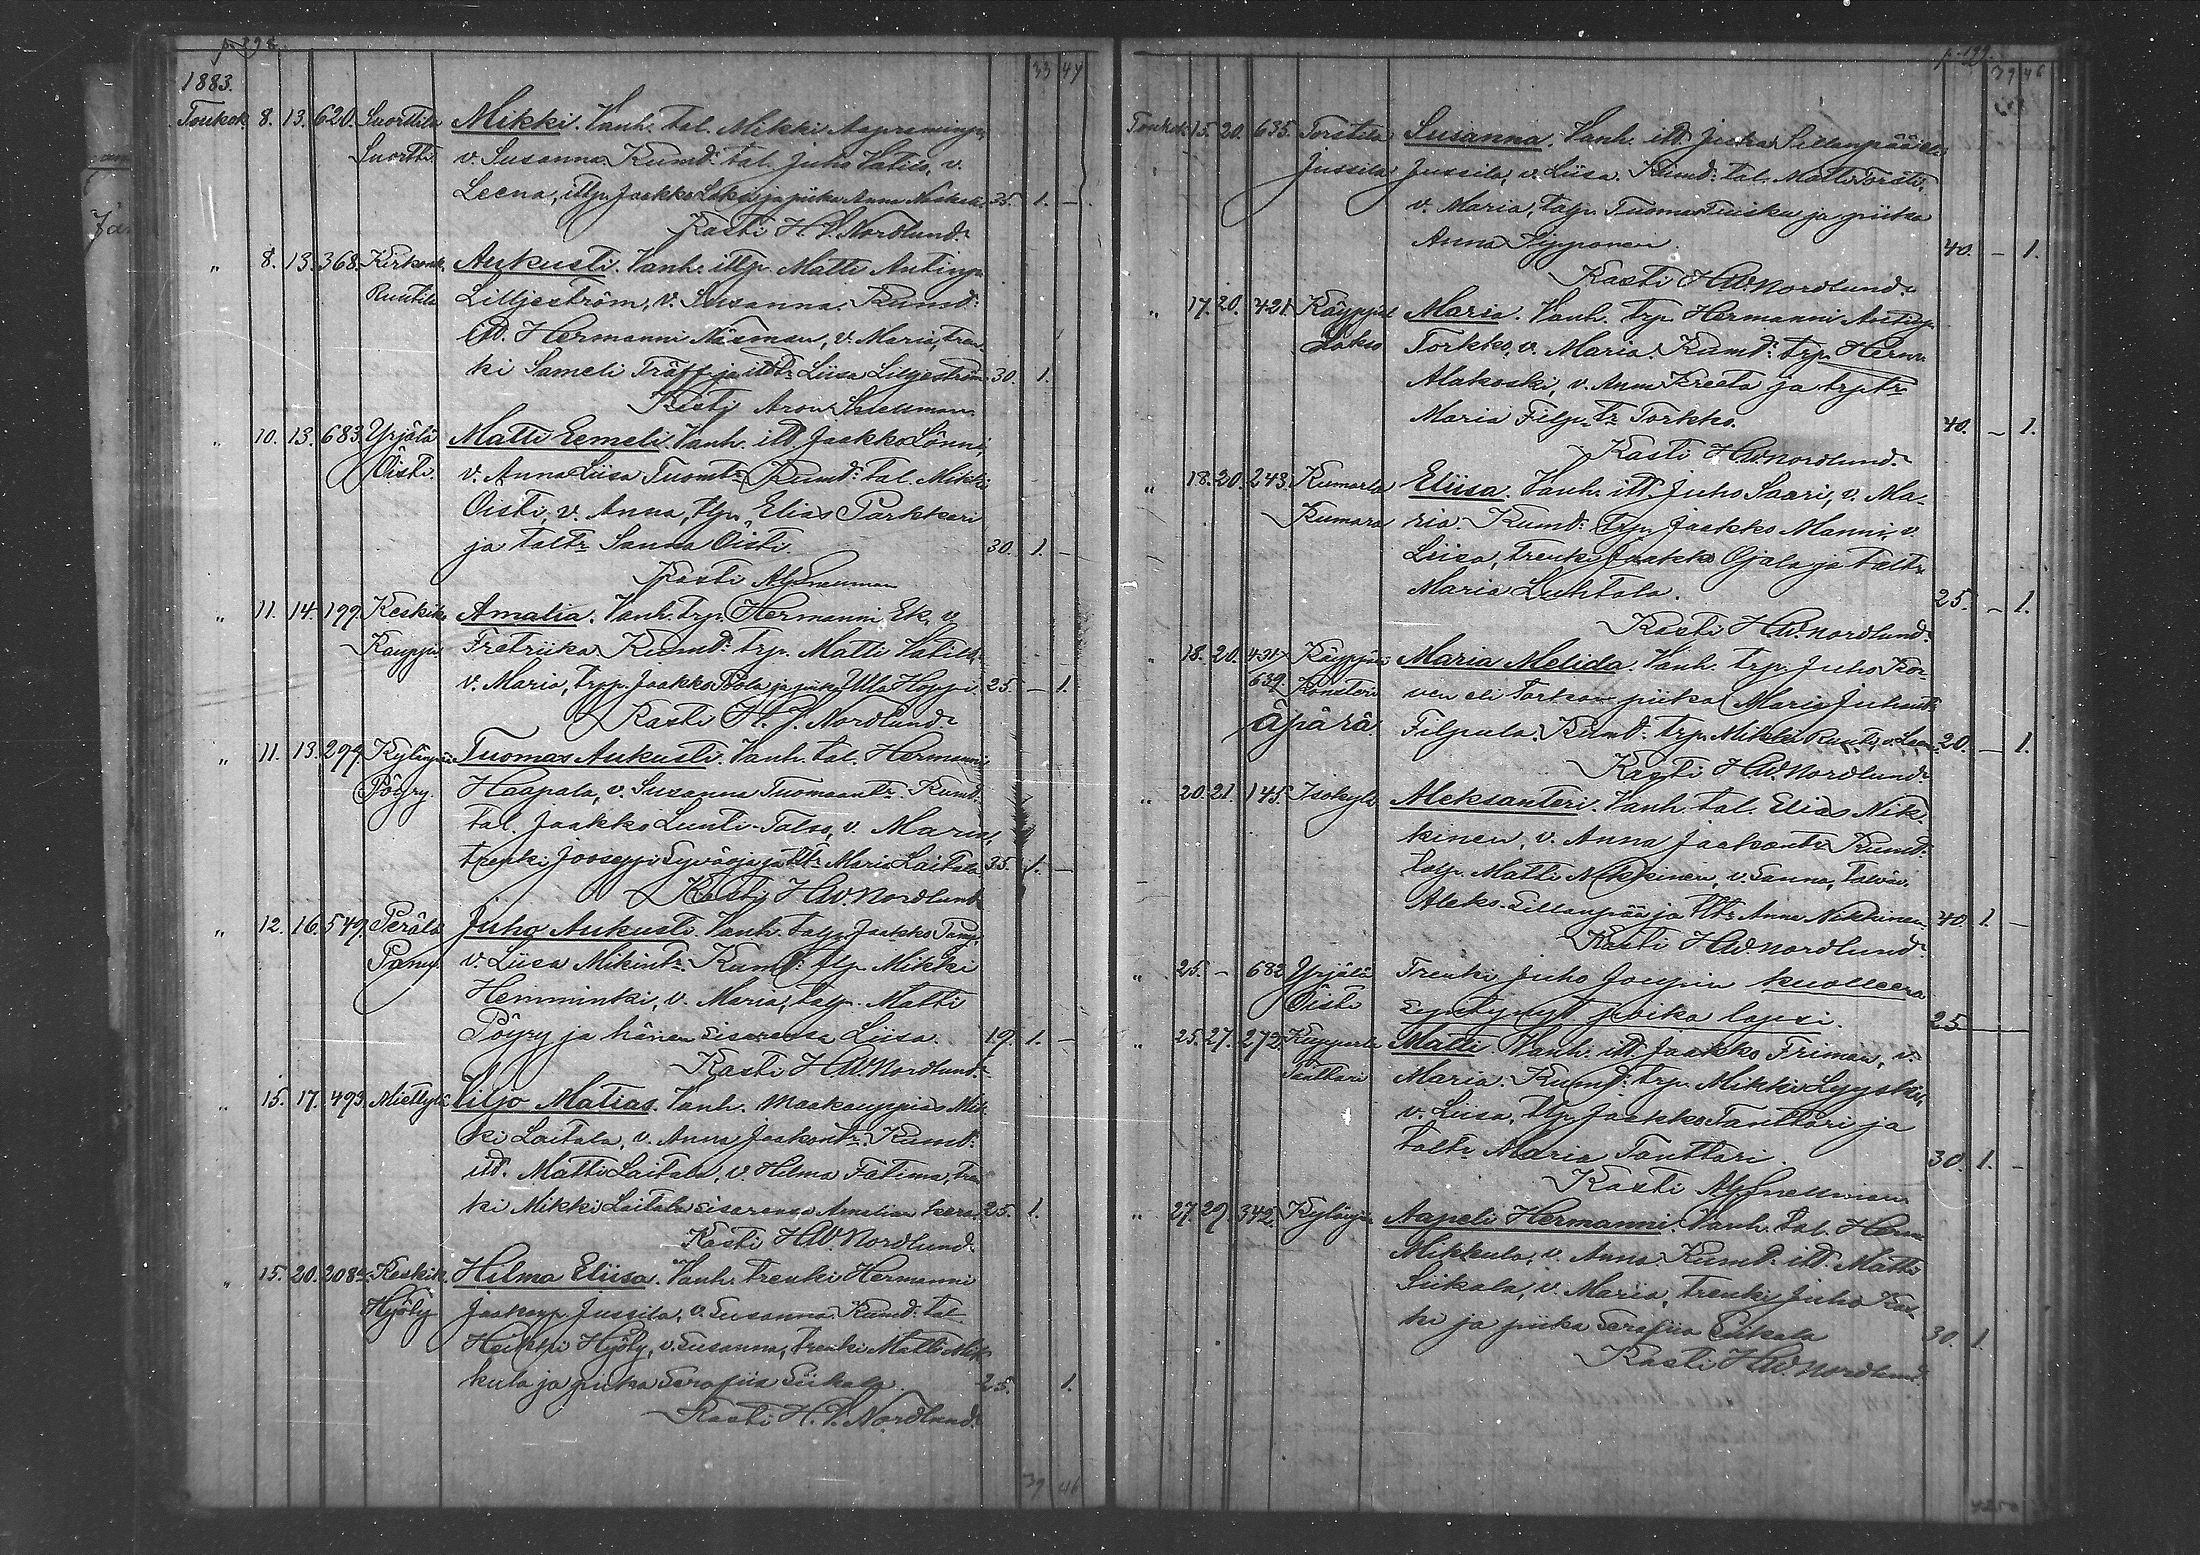 p. 398.
1883. 33 44
Toukok. 8. 13. 620. Suorttila Mikki. Vanh. tal. Mikki
Suortti. v. Susanna. Kumd: tal. Juho Vatilo, v.
Leena, ittp. Jaakko ja piika Anna 35. 1. —
Kasti H. V. Nordlund.
" 8. 13. 368. Kirkonk. Aukusti. Vanh. ittp. Matti Antinp.
Ruutila Liljeström, v. Susanna. Kumd:
itt. Hermanni Näsman, v. Maria, tren-
ki Sameli Träff ja ittr. Liisa Liljeström 30. 1.
Kasti Aron Snellman.
" 10. 13. 683. Yrjälä Matti Eemeli. Vanh. itt. Jaakko Lönni,
Öisti. v. Anna Liisa Tuomtr. Kumd: tal. Mikki
Öisti, v. Anna, tlp. Elias Parkkari
ja taltr. Sanna Öisti. 30. 1. —
Kasti Alf Snellman
" 11. 14. 199. Keskik. Amalia. Vanh. trp. Hermanni Ek, v.
Kauppi. Fretriika. Kumd: trp. Matti Vatilo,
v. Maria, trpp. Jaakko Pola ja piika Ulla Hoppi. 25. — 1.
Kasti H. V. Nordlund.
" 11. 13. 299. Kylänpää Tuomas Aukusti. Vanh. tal. Hermanni
Pöyry. Haapala, v. Susanna Tuomaantr. Kumd:
tal. Jaakko Lunti-Talso, v. Maria,
trenki Jooseppi Syväoja ja tltr. Maria Laitala 35. 1. —
Kasti H.W. Nordlund
" 12. 16. 549. Perälä Juho Aukusti. Vanh. talp. Jaakko
v. Liisa Mikintr. Kumd: tlp. Mikki
Hemminki, v. Maria, talp. Matti
Pöyry ja hänen sisarensa Liisa. 19. 1. —
Kasti H.W. Nordlund.
" 15. 17. 493. Miettylä Viljo Matias. Vanh. Maakauppias Mik-
ki Laitala, v. Anna Jaakontr. Kumd:
itt. Matti Laitala, v. Hilma Fatima, tren-
ki Mikki Laitala sisarensa Amalian kera. 25. 1.
Kasti H.W. Nordlund.
" 15. 20. 208½. Keskik. Hilma Eliisa. Vanh. trenki Hermanni
Hyöty Jaakonp. Jussila, v. Susanna. Kumd: tal.
Heikki Hyöty, v. Susanna, trenki Matti Mik-
kula ja piika Serafiia Siikala. 25. 1.
Kasti H. V. Nordlund.
39 46
p. 399.
39 46
Toukok. 15. 20. 635. Torstila Susanna. Vanh. itt. Juha Sillanpää eli
Jussila Jussila, v. Liisa. Kumd: tal. Matti Torsti,
v. Maria, talp. Tuomas Tuisku ja piika
Anna Sipponen. 40. — 1.
Kasti H.W. Nordlund.
" 17. 20. 421. Käyppä Maria. Vanh. trp. Hermanni Antinp.
Lökso Torkko, v. Maria. Kumd: trp. Herm.
Alakoski, v. Anna Kreeta ja trptr.
Maria Filip. tr. Torkko. 40. — 1.
Kasti H.W. Nordlund.
" 18. 20. 243. Kumarla Eliisa. Vanh. itt. Juho Saari, v. Ma-
Kumara ria. Kumd: trp. Jaakko Manni, v.
Liisa, trenki Jaakko Ojala ja taltr.
Maria Luhtala. 25. — 1.
Kasti H.W. Nordlund.
" 18. 20. 421 Käyppä Maria Melida. Vanh. trp. Juho
639. Könsteri ven eli Torkon piika Maria Juhontr.
Äpärä Filpula. Kumd: trp. Mikki v. Leena 20. — 1.
Kasti H.W. Nordlund.
" 20. 21. 145. Isokylä Aleksanteri. Vanh. tal. Elias Nik-
kinen, v. Anna Jaakontr. Kumd:
talp. Matti Nikkinen, v. Sanna, talov.
Aleks. Sillanpää ja tltr. Anna Nikkinen. 40. 1. —
Kasti H.W. Nordlund.
" 25. — 682 Yrjälä Trenki Juho Joupin kuolleena
Öisti syntynyt poika lapsi. 25
" 25. 27. 272. Kupparla Matti. Vanh. itt. Jaakko Friman, v.
Tanttari Maria. Kumd: trp. Mikki
v. Liisa, tlp. Jaakko Tanttari ja
taltr. Maria Tanttari. 30. 1. —
Kasti Alf Snellman.
" 27. 29. 342. Kylänp. Aapeli Hermanni. Vanh. tal. Herm.
Mikkula, v. Anna. Kumd: itt. Matti
Siikala, v. Maria, trenki Juho
ki ja piika Serafiia Siikala 30. 1.
Kasti H.W. Nordlund.